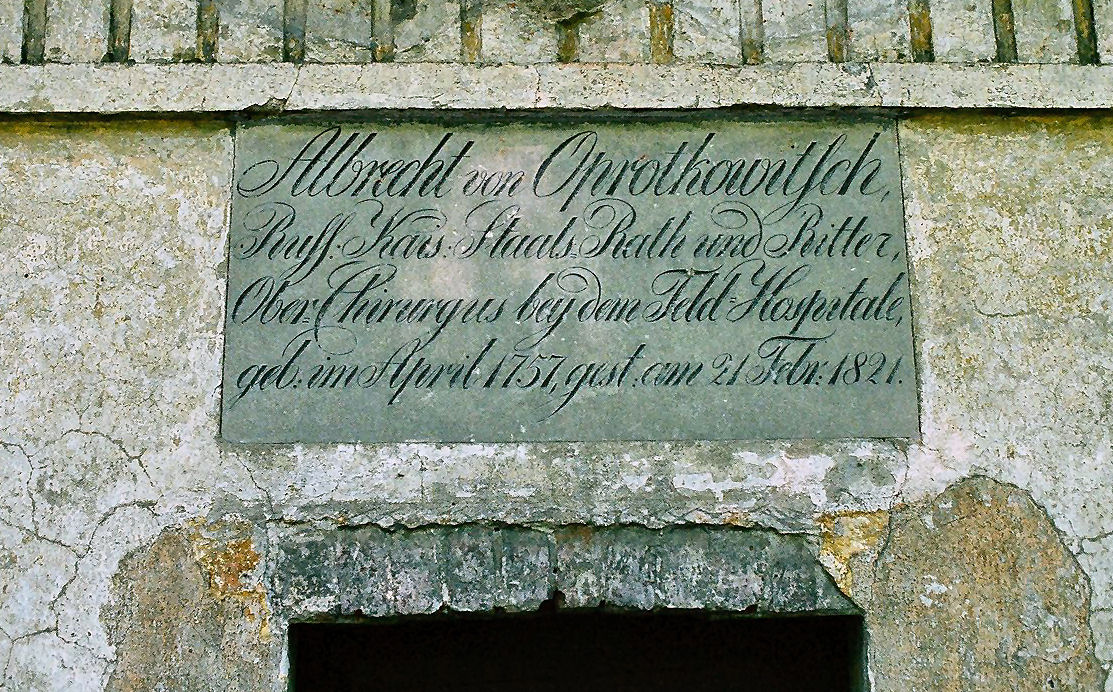 Albrecht von Oprotkowitſch,
Ruſſ: Kais: Staats-Rath und Ritter,
Ober-Chirurgus bey dem Feld-Hospitale,
geb: im April 1757, gest: am 21 Febr: 1821.